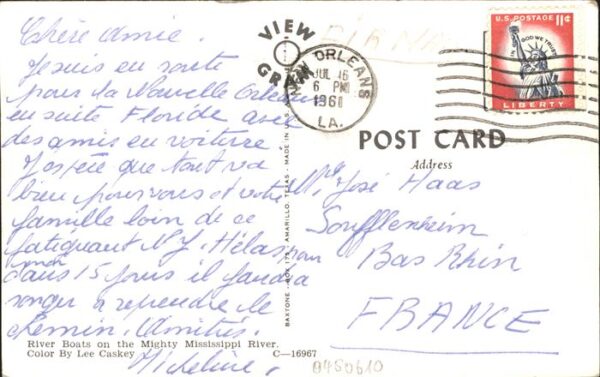 Chère Amie.
Je suis en route
pour la Nouvelle Orléans
en suite Floride avec
des amis en voiture.
J'espère que tout va
bien pour vous et votre
famille loin de ce
fatiguant N.Y. Hélas pour
moi
dans 15 jours il faudra
songer à reprendre le
chemin. Amitiés.
Micheline.
River Boats on the Mighty Mississippi River.
Color By Lee Caskey
C-16967
VIEW
GRAM
BAXTONE - BOX 175 - AMARILLO, TEXAS - MADE IN U.S.A.
AIR MAIL
NEW ORLEANS
JUL 16
6 PM
1961
LA.
U.S. POSTAGE 11¢
IN GOD WE TRUST
LIBERTY
POST CARD
Address
José Haas
Soufflenheim
Bas Rhin
FRANCE
0450610